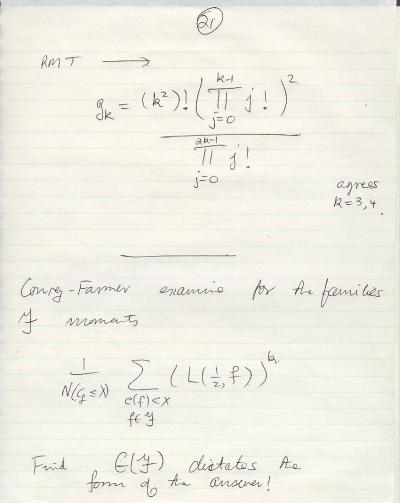 21
RMT →
g_k = (k²)! ( ∏_{j=0}^{k-1} j! )² / ∏_{j=0}^{2k-1} j!
agrees
k=3,4.
Conrey-Farmer examine for the families
F moments
1/N(C_f ≤ X) ∑_{c(f)≤X, f∈F} ( L(½, f) )^k.
Find E(F) dictates the
form of the answer!